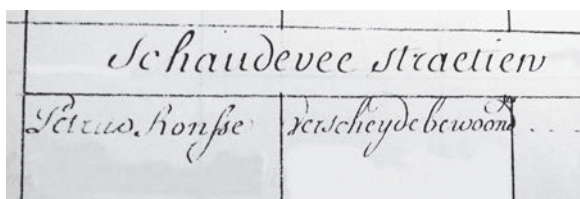 Schaudevee straetien
Petrus Ronsse verscheyde bewoond